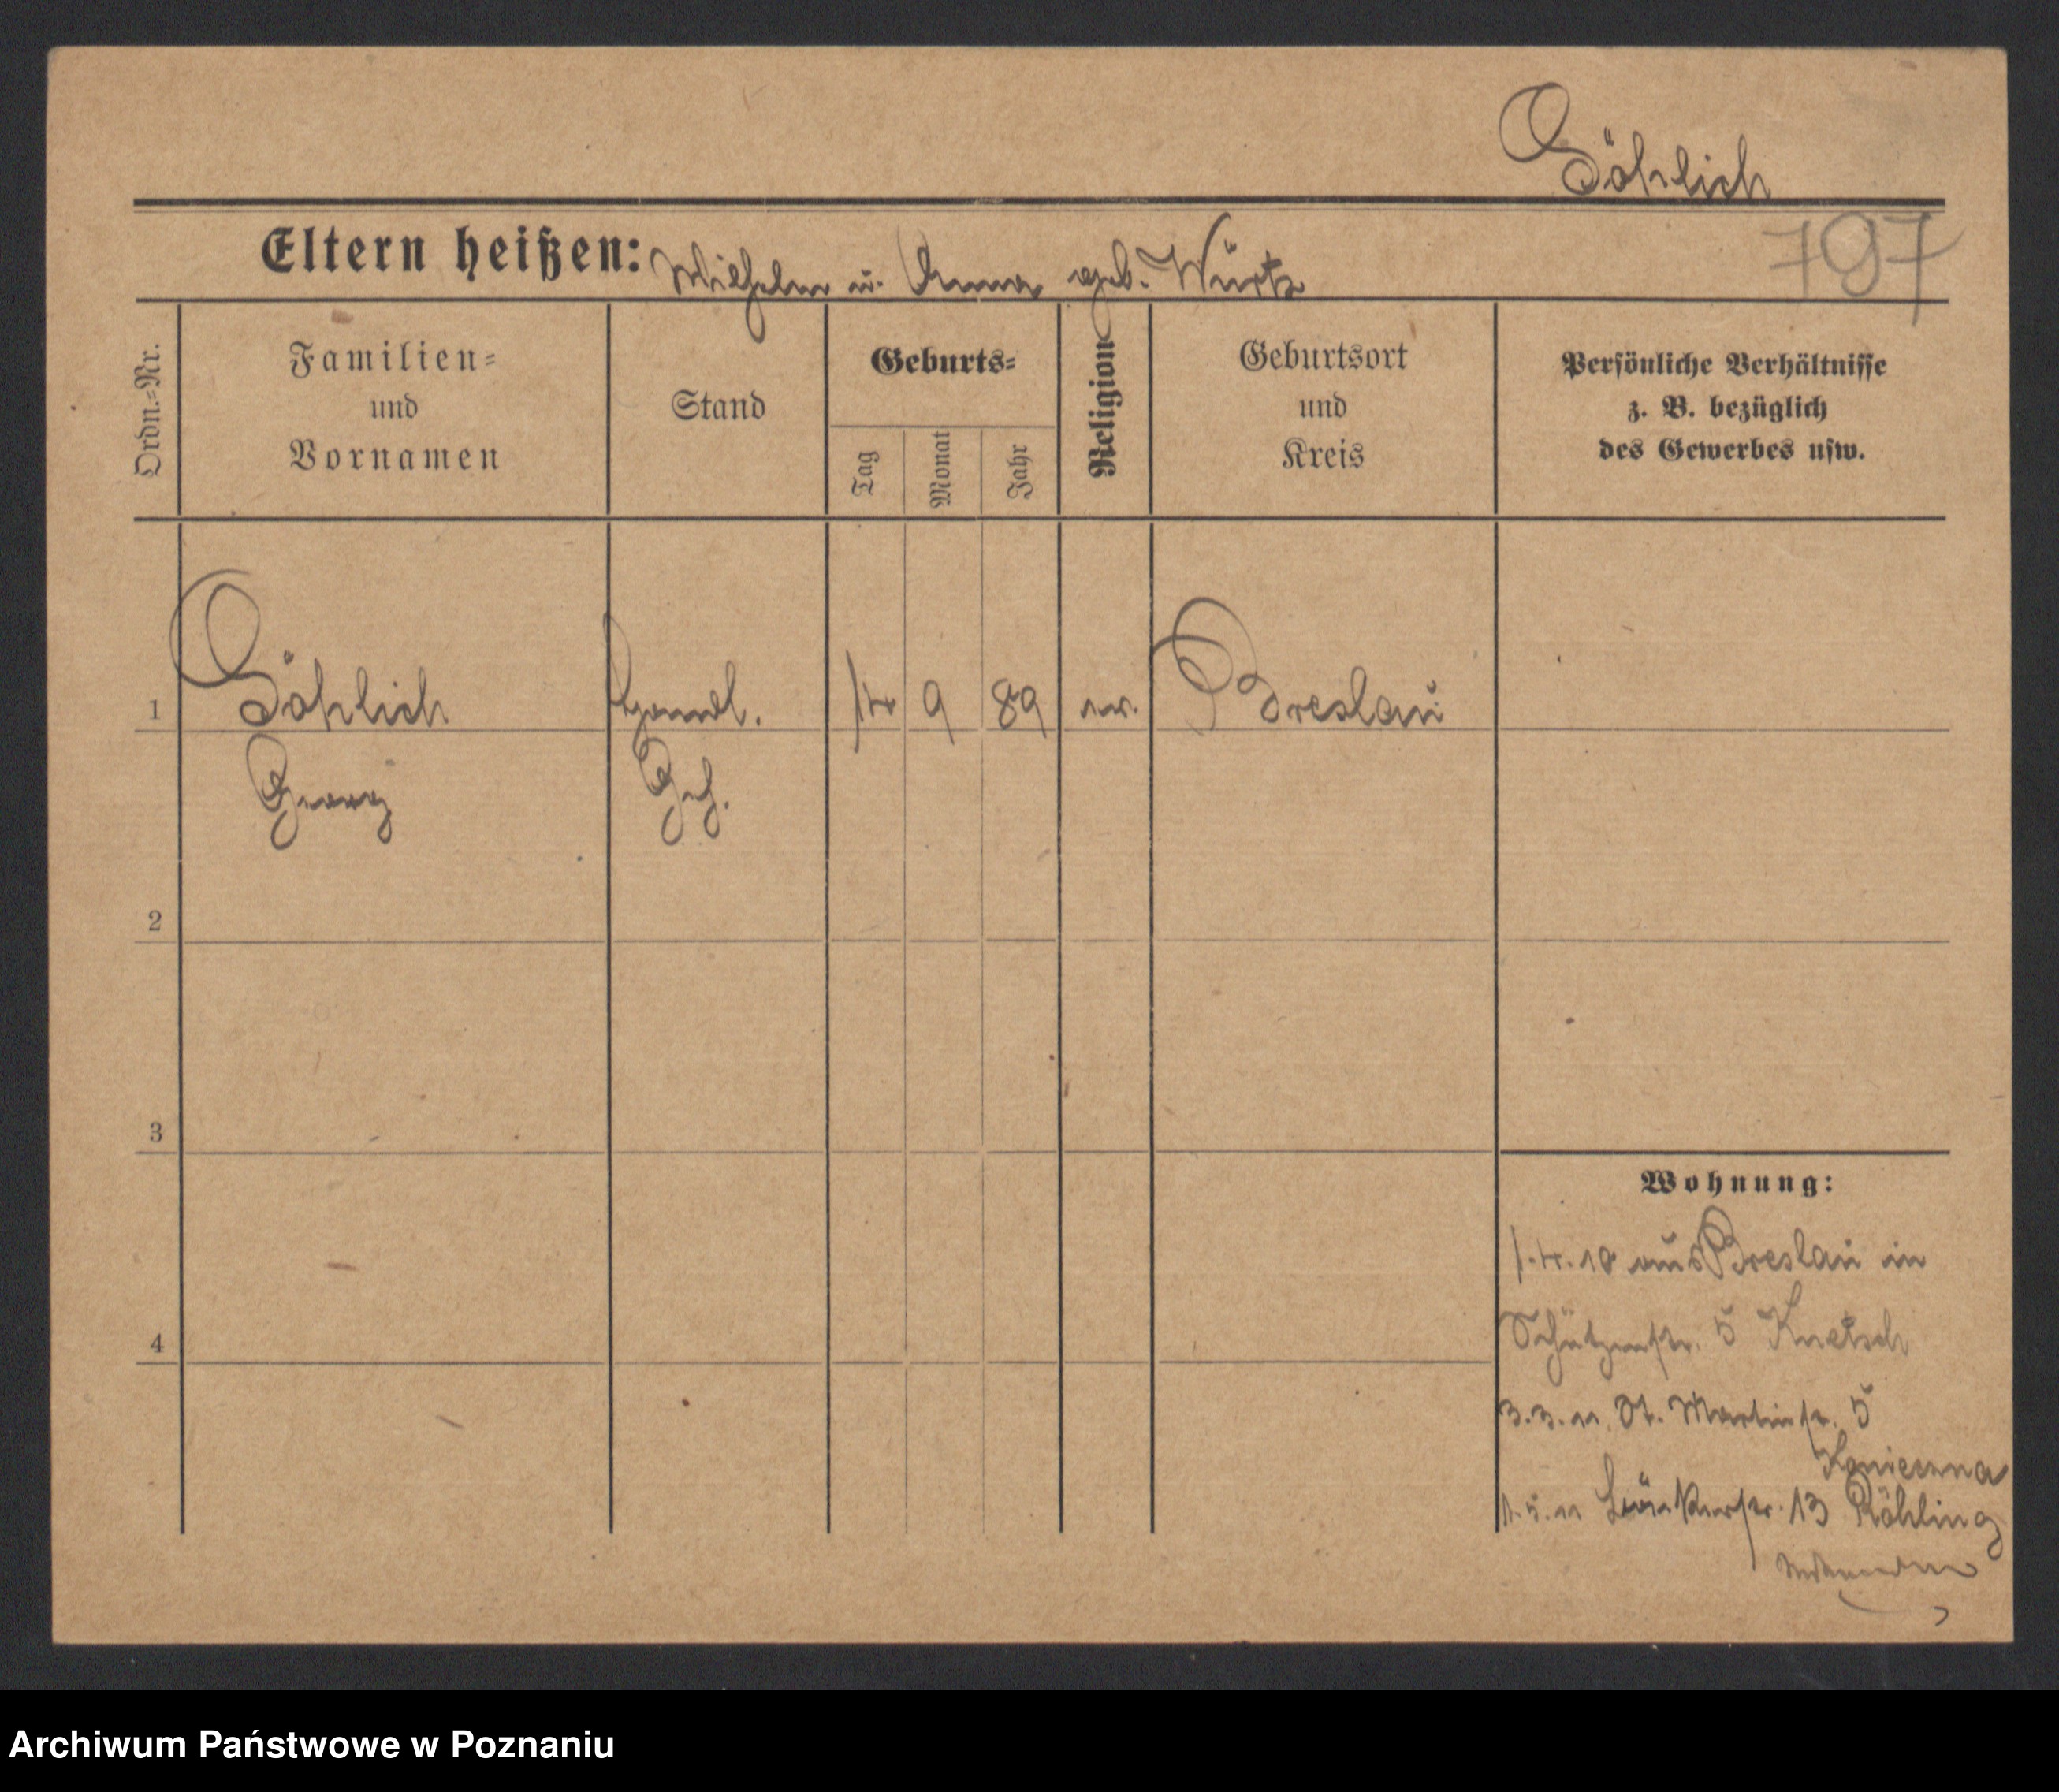 Göhlich
Eltern heißen: Wilhelm u. Anna geb. Würtz
797
Ordn.-Nr.
Familien-
und
Vornamen
Stand
Geburts-
Tag
Monat
Jahr
Religion
Geburtsort
und
Kreis
Persönliche Verhältnisse
z. B. bezüglich
des Gewerbes usw.
1 Göhlich Handl. 14 9 89 ev. Breslau
Georg Geh.
2
3
4
Wohnung:
1.4.10 aus Breslau in
Schützenstr. 5 Knetsch
3.3.11. St. Martinstr. 5
1.5.11 13 Röhling
Archiwum Państwowe w Poznaniu